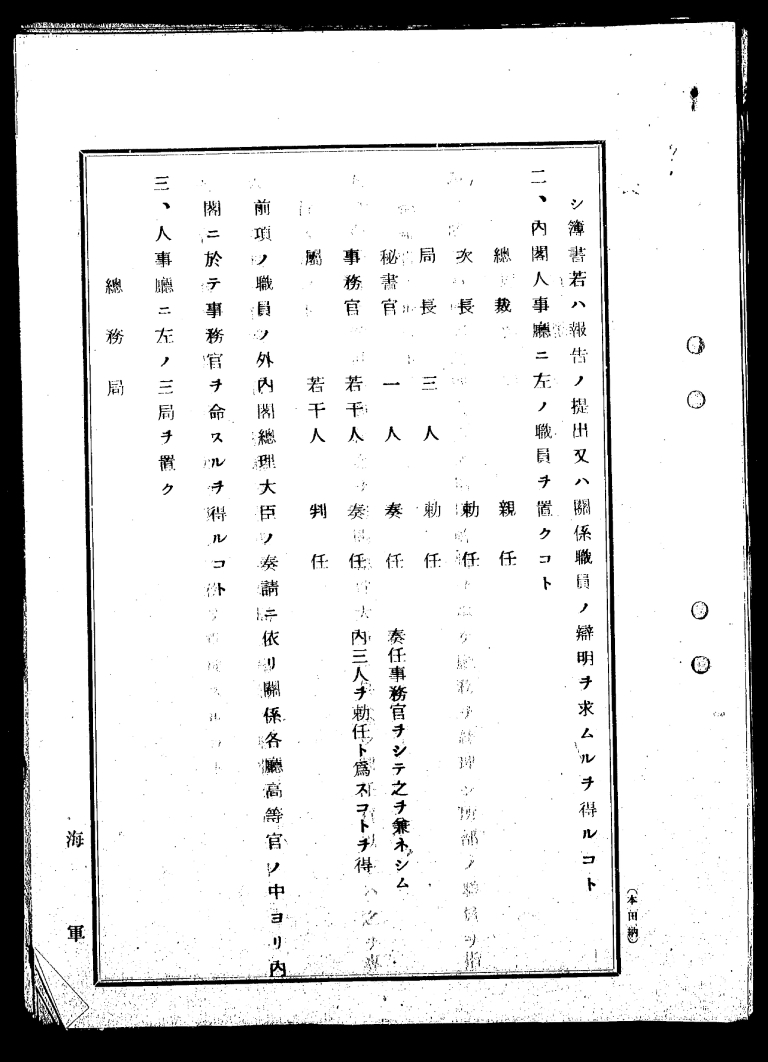 シ簿書若ハ報告ノ提出又ハ關係職員ノ辯明ヲ求ムルヲ得ルコト
二、內閣人事廳ニ左ノ職員ヲ置クコト
總裁 親任
次長 勅任
局長 三人 勅任
秘書官 一人 奏任 奏任事務官ヲシテ之ヲ兼ネシム
事務官 若干人 奏任 內三人ヲ勅任ト爲スコトヲ得
屬 若干人 判任
前項ノ職員ノ外內閣總理大臣ノ奏請ニ依リ關係各廳高等官ノ中ヨリ內
閣ニ於テ事務官ヲ命スルヲ得ルコト
三、人事廳ニ左ノ三局ヲ置ク
總務局
海軍
(本田納)